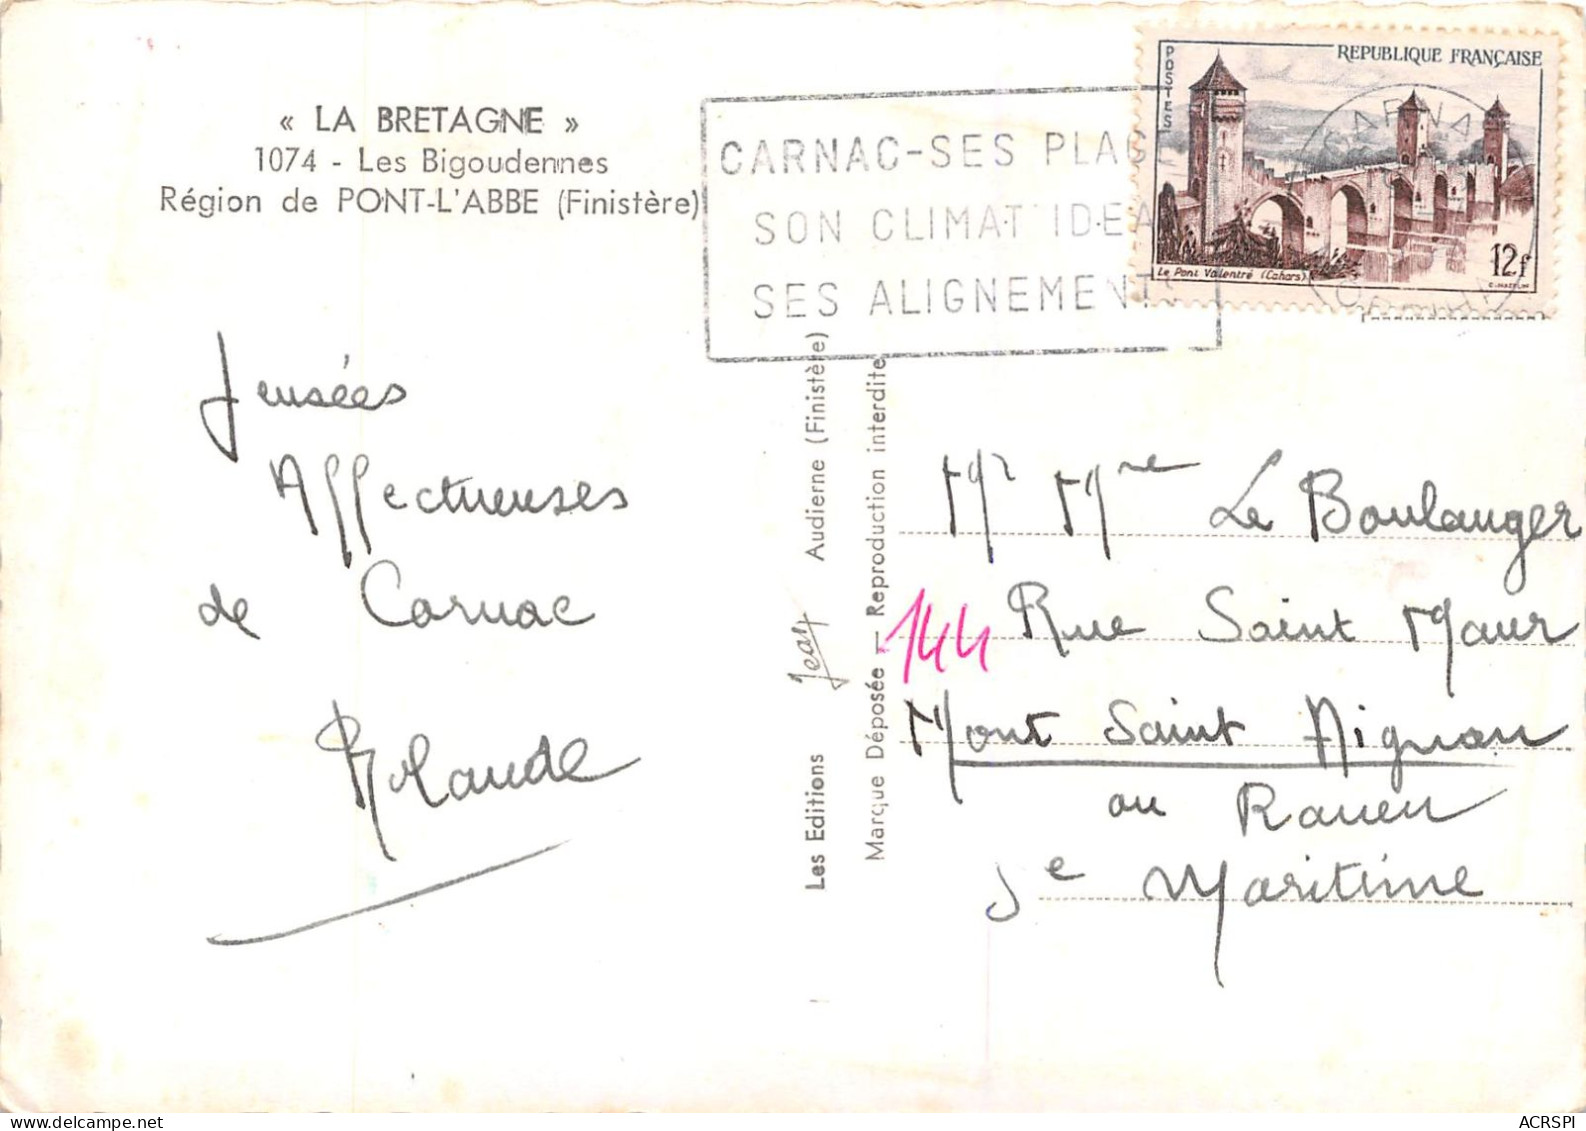 « LA BRETAGNE »
1074 - Les Bigoudennes
Région de PONT-L'ABBE (Finistère)
CARNAC-SES PLAGE
SON CLIMAT IDEA
SES ALIGNEMENT
POSTES
REPUBLIQUE FRANÇAISE
Le Pont Valentré (Cahors)
12f
CARNAC
Pensées
Affectueuses
de Carnac
Rolande
Les Editions Jean Audierne (Finistère)
Marque Déposée — Reproduction interdite
Mr Mme Le Boulanger
144 Rue Saint Maur
Mont Saint Aignan
ou Rouen
Se Maritime
ACRSPI